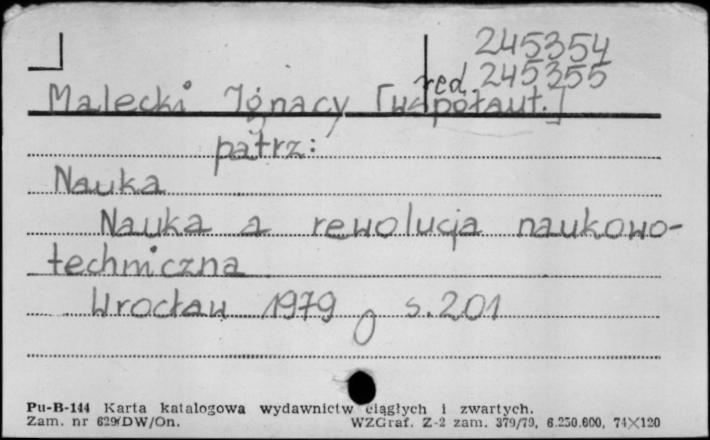 245354
red. 245355
Malecki Ignacy [współaut.]
patrz:
Nauka
Nauka a rewolucja naukowo-
techniczna
Wrocław 1979 s. 201
Pu-B-144 Karta katalogowa wydawnictw ciągłych i zwartych.
Zam. nr 629/DW/On. WZGraf. Z-2 zam. 379/79, 6.250.000, 74×120